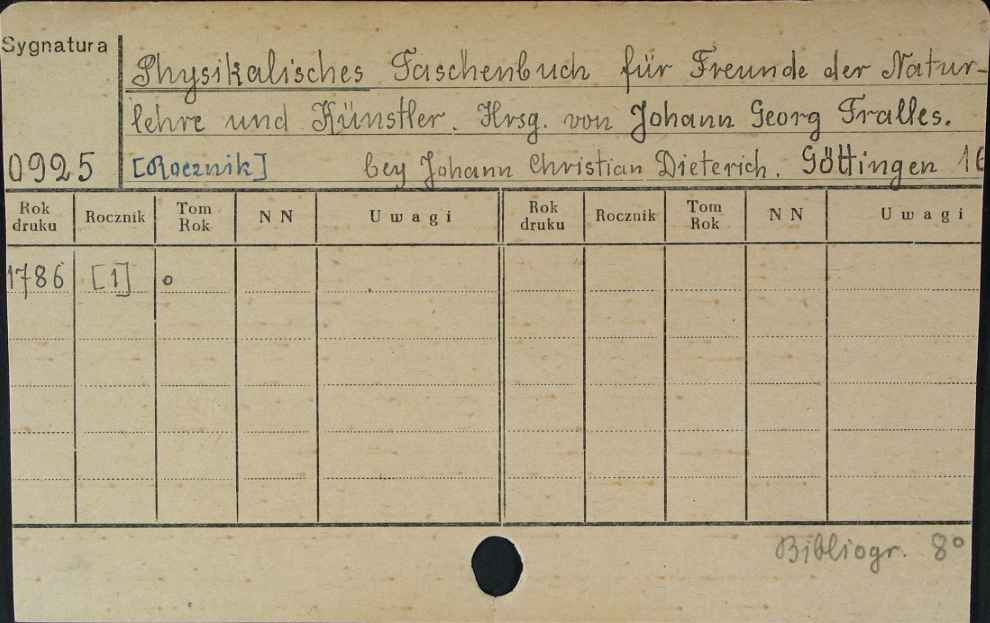 Sygnatura
Physikalisches Taschenbuch für Freunde der Natur-
lehre und Künstler. Hrsg. von Johann Georg Fralles.
0925 [Rocznik] bey Johann Christian Dieterich. Göttingen 16
Rok druku Rocznik Tom Rok N N Uwagi Rok druku Rocznik Tom Rok N N Uwagi
1786 [1] o
Bibliogr. 8°